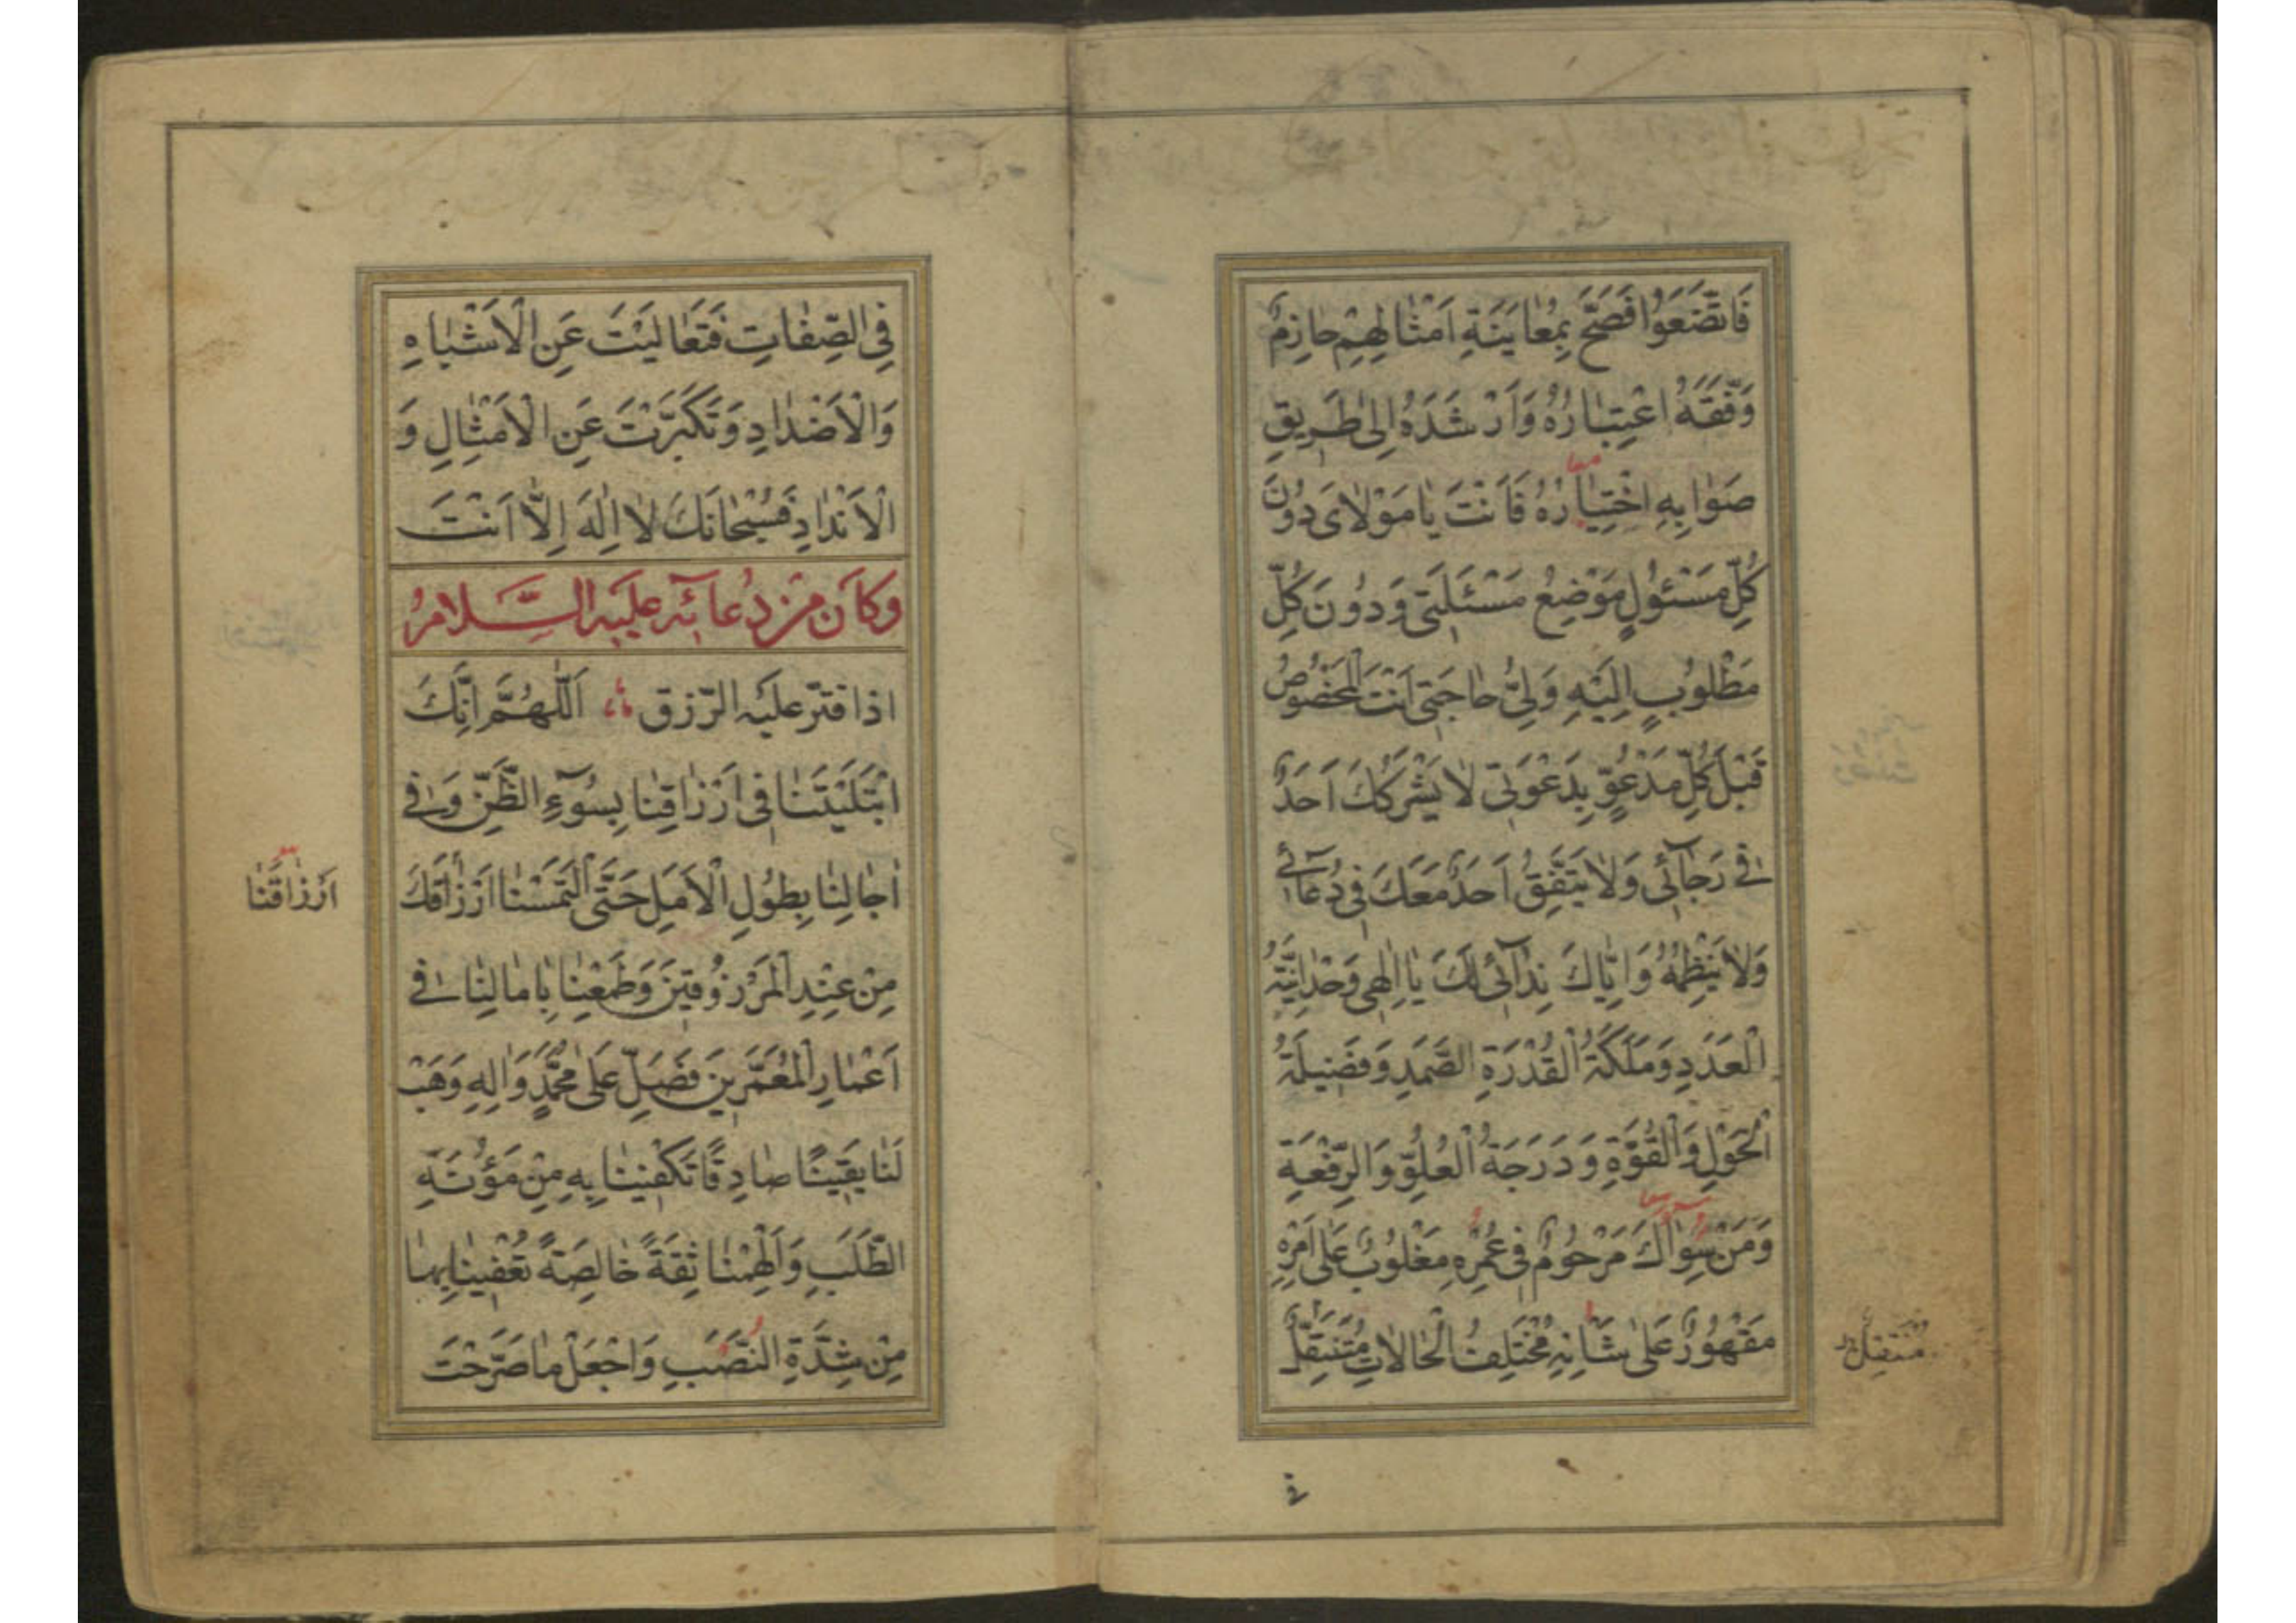 فَاتَّضَعَوُا فَصَحَّ بِمُعٰايَنَةِ اَمْثٰالِهِمْ حٰازِمٌ
وَفَّقَهُ اعْتِبٰارُهُ وَاَرْشَدَهُ اِلىٰ طَرِيقِ
صَوٰابِهِ اخْتِيٰارُهُ فَاَنْتَ يٰا مَوْلاٰىَ دُونَ
كُلِّ مَسْئُولٍ مَوْضِعُ مَسْئَلَتى وَدُونَ كُلِّ
مَطْلُوبٍ اِلَيْهِ وَلِىُّ حٰاجَتى اَنْتَ الْمَخْصُوصُ
قَبْلَ كُلِّ مَدْعُوٍّ بِدَعْوَتى لاٰ يَشْرَكُكَ اَحَدٌ
فى رَجٰآئى وَلاٰ يَتَّفِقُ اَحَدٌ مَعَكَ فى دُعٰآئى
وَلاٰ يَنْظِمُهُ وَاِيّٰاكَ نِدٰآئى لَكَ يٰا اِلٰهى وَحْدٰانِيَّةُ
الْعَدَدِ وَمَلَكَةُ الْقُدْرَةِ الصَّمَدِ وَفَضيلَةُ
الْحَوْلِ وَالْقُوَّةِ وَدَرَجَةُ الْعُلُوِّ وَالرِّفْعَةِ
وَمَنْ سِوٰاكَ مَرْحُومٌ فى عُمُرِهِ مَغْلُوبٌ عَلىٰ اَمْرِهِ
مَقْهُورٌ عَلىٰ شَاْنِهِ مُخْتَلِفُ الْحٰالاٰتِ مُتَنَقِّلٌ
مُنْتَقِلٌ
فِى الصِّفٰاتِ فَتَعٰالَيْتَ عَنِ الْاَشْبٰاهِ
وَالْاَضْدٰادِ وَتَكَبَّرْتَ عَنِ الْاَمْثٰالِ وَ
الْاَنْدٰادِ فَسُبْحٰانَكَ لاٰ اِلٰهَ اِلاّٰ اَنْتَ
وَكاٰنَ مِنْ دُعاٰئِهِ عَلَيْهِ السَّلاٰمُ
اذا قتّر عليه الرّزق اَللّٰهُمَّ اِنَّكَ
ابْتَلَيْتَنٰا فى اَرْزٰاقِنٰا بِسُوٓءِ الظَّنِّ وَفى
اٰجٰالِنٰا بِطُولِ الْاَمَلِ حَتَّى الْتَمَسْنٰا اَرْزٰاقَكَ
اَرْزٰاقَنٰا
مِنْ عِنْدِ الْمَرْزُوقينَ وَطَمِعْنٰا بِاٰمٰالِنٰا فى
اَعْمٰارِ الْمُعَمَّرينَ فَصَلِّ عَلىٰ مُحَمَّدٍ وَاٰلِهِ وَهَبْ
لَنٰا يَقينًا صٰادِقًا تَكْفينٰا بِهِ مِنْ مَؤُنَةِ
الطَّلَبِ وَاَلْهِمْنٰا ثِقَةً خٰالِصَةً تُعْفينٰا بِهٰا
مِنْ شِدَّةِ النَّصَبِ وَاجْعَلْ مٰا صَرَّحْتَ